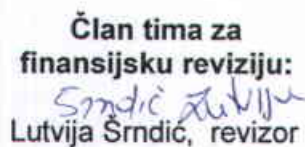 Član tima za
finansijsku reviziju:
Srndić Lutvija
Lutvija Šrndić, revizor